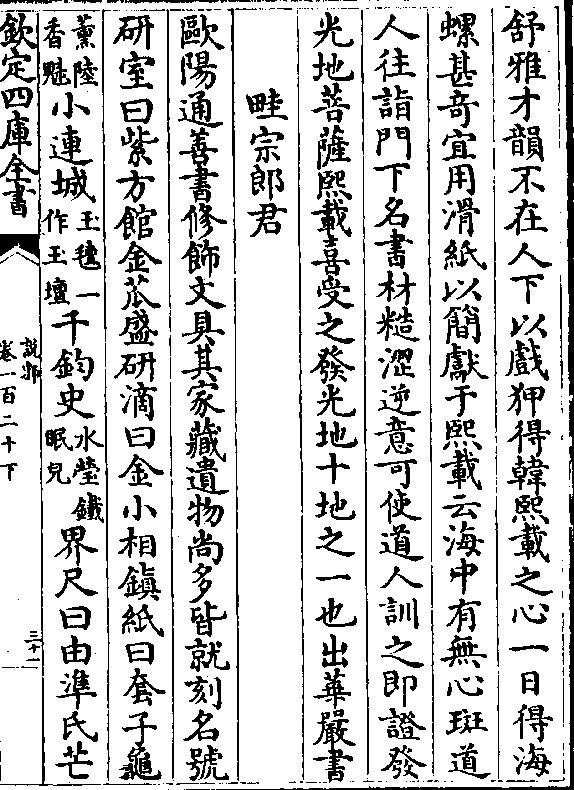 舒雅才韻不在人下以戲狎得韓熙載之心一日得海
螺甚奇宜用滑紙以簡獻于熙載云海中有無心斑道
人往詣門下名書材糙澀逆意可使道人訓之即證發
光地菩薩熙載喜受之發光地十地之一也出華嚴書
畦宗郎君
歐陽通善書修飾文具其家藏遺物尚多皆就刻名號
研室曰紫方館金苽盛研滴曰金小相鎮紙曰套子龜
薰陸香魅小連城玉㲲一作玉壇千鈞史水瑩鐵眠兒界尺曰由準氏芒
欽定四庫全書
說郛
卷一百二十下
三十一